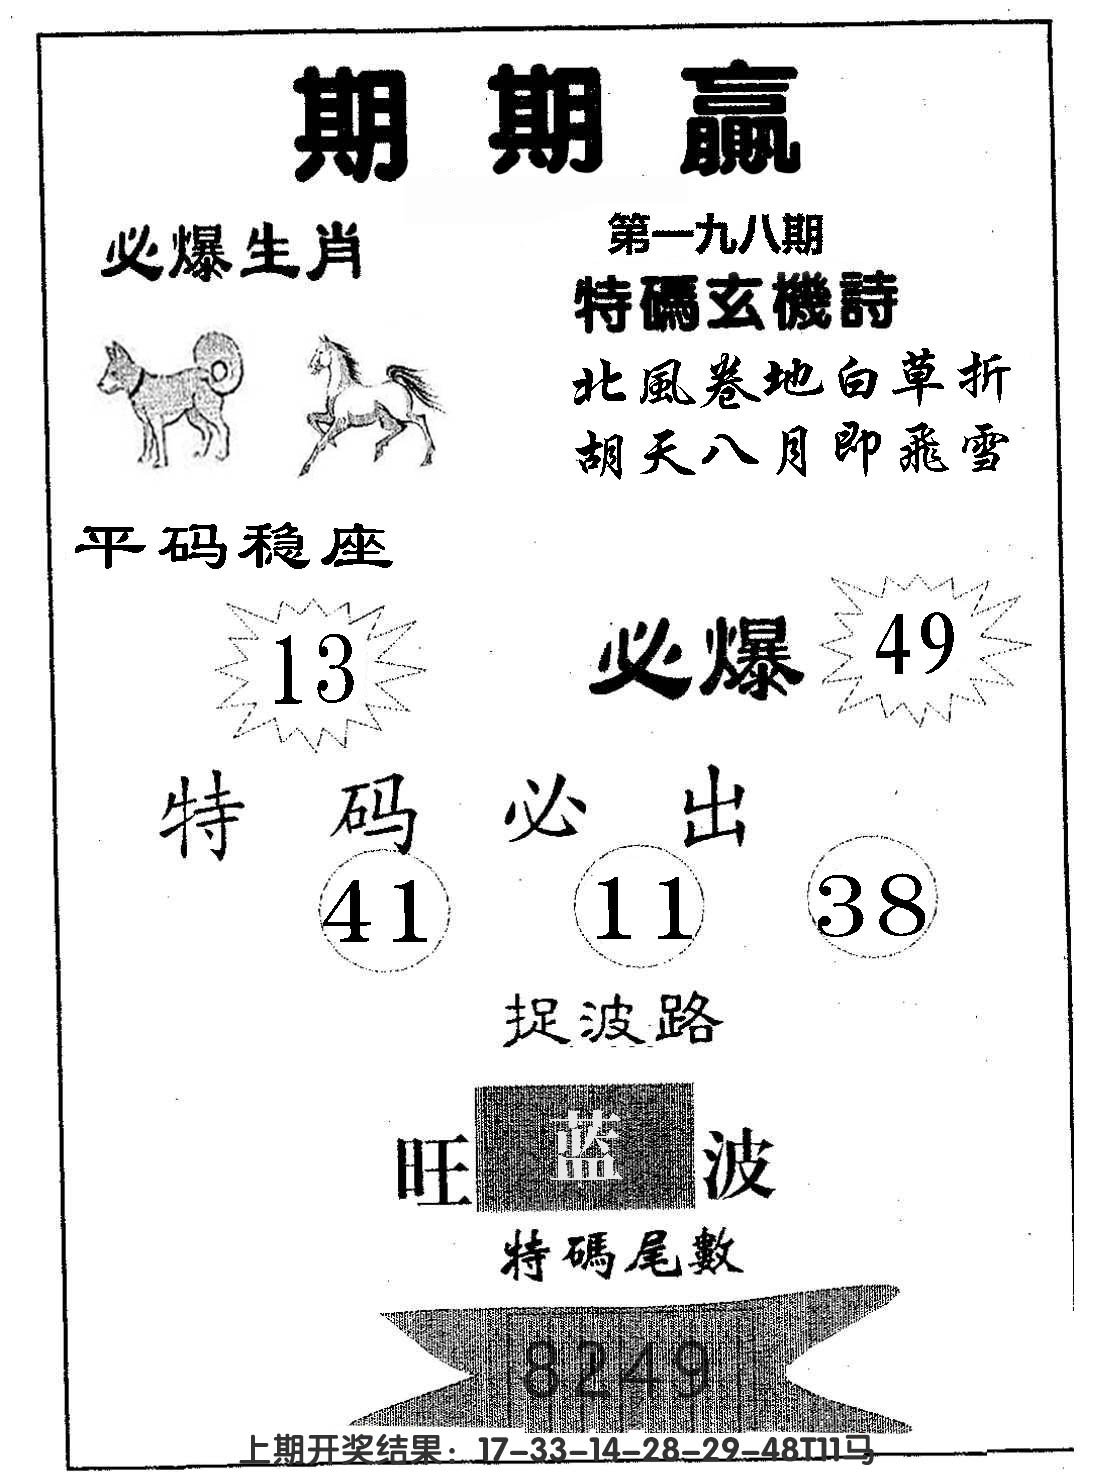 期期赢
必爆生肖
第一九八期
特碼玄機詩
北風卷地白草折
胡天八月即飛雪
平码稳座
13
必爆
49
特码必出
41 11 38
捉波路
旺蓝波
特碼尾數
8249
上期开奖结果：17-33-14-28-29-48T11马